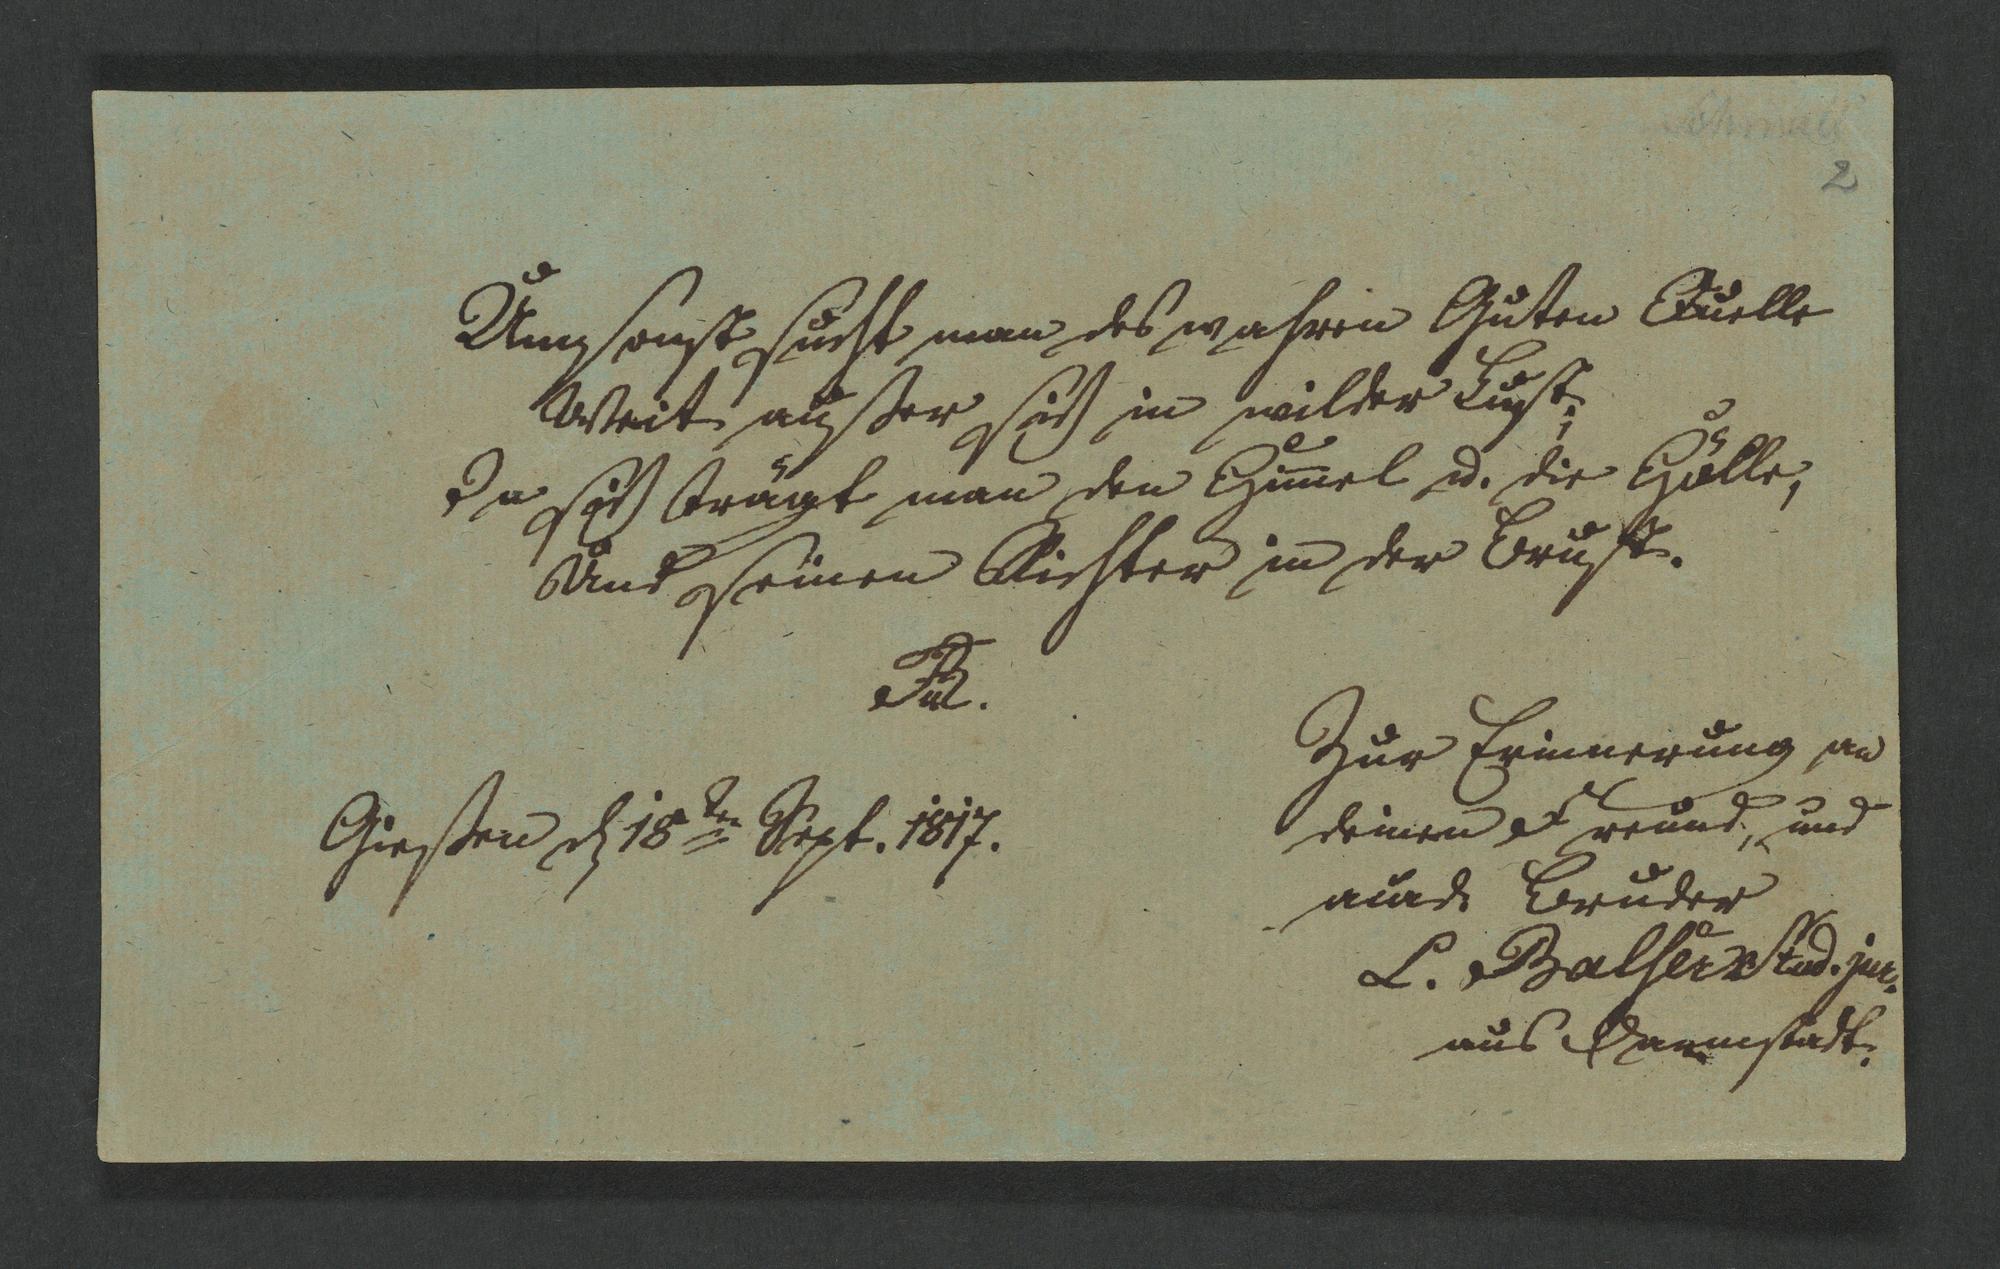 2
Umsonst sucht man des wahren Guten Quelle
Weit außer sich in wilder Lust;
In sich trägt man den Himmel u. die Hölle,
Und seinen Richter in der Brust.
Gießen d 18ten Sept. 1817.
Zur Erinnerung an
deinen Freund, und
acad. Bruder
L. Balser stud. jur.
aus Darmstadt.